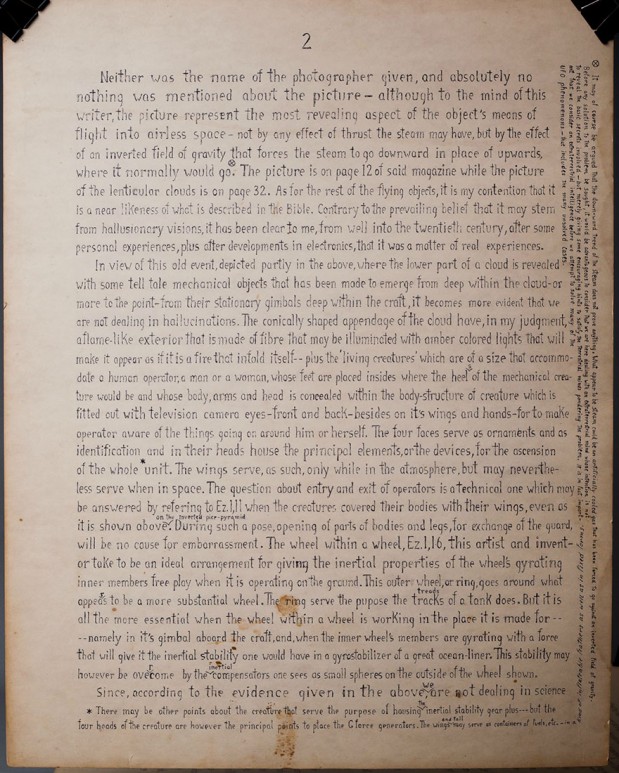 2
Neither was the name of the photographer given, and absolutely no
nothing was mentioned about the picture – although to the mind of this
writer, the picture represent the most revealing aspect of the object's means of
flight into airless space – not by any effect of thrust the steam may have, but by the effect
of an inverted field of gravity that forces the steam to go downward in place of upwards,
where it normally would go.⊗ The picture is on page 12 of said magazine while the picture
of the lenticular clouds is on page 32. As for the rest of the flying objects, it is my contention that it
is a near likeness of what is described in the Bible. Contrary to the prevailing belief that it may stem
from hallusionary visions, it has been clear to me, from well into the twentieth century, after some
personal experiences, plus after developments in electronics, that it was a matter of real experiences.
In view of this old event, depicted partly in the above, where the lower part of a cloud is revealed
with some tell tale mechanical objects that has been made to emerge from deep within the cloud – or
more to the point – from their stationary gimbals deep within the craft, it becomes more evident that we
are not dealing in hallucinations. The conically shaped appendage of the cloud have, in my judgment,
a flame-like exterior that is made of fibre that may be illuminated with amber colored lights that will
make it appear as if it is a fire that infold itself -- plus the 'living creatures' which are of a size that accommo-
date a human operator, a man or a woman, whose feet are placed insides where the heel's of the mechanical crea-
ture would be and whose body, arms and head is concealed within the body-structure of creature which is
fitted out with television camera eyes-front and back-besides on it's wings and hands-for to make
operator aware of the things going on around him or herself. The four faces serve as ornaments and as
identification and in their heads house the principal elements, or the devices, for the ascension
of the whole * unit. The wings serve, as such, only while in the atmosphere, but may neverthe-
less serve when in space. The question about entry and exit of operators is a technical one which may
be answered by refering to Ez.1,11 when the creatures covered their bodies with their wings, even as
it is shown above on the inverted pyramid. During such a pose, opening of parts of bodies and legs, for exchange of the guard,
will be no cause for embarrassment. The wheel within a wheel, Ez.1,16, this artist and invent-
or take to be an ideal arrangement for giving the inertial properties of the wheel's gyrating
inner members free play when it is operating on the ground. This outer wheel, or ring, goes around what
appears to be a more substantial wheel. The ring serve the pupose the treads tracks of a tank does. But it is
all the more essential when the wheel within a wheel is working in the place it is made for --
-- namely in it's gimbal aboard the craft, and, when the inner wheel's members are gyrating with a force
that will give it the inertial stability one would have in a gyrostabilizer of a great ocean-liner. This stability may
however be overcome by the inertial compensators one sees as small spheres on the outside of the wheel shown.
Since, according to the evidence given in the above, we are not dealing in science
* There may be other points about the creature that serve the purpose of housing the inertial stability gear plus -- but the
four heads of the creature are however the principal points to place the G force generators. The wings and tail may serve as containers of fuels, etc.
⊗ It may of course be argued that the downward trend of the steam does not prove anything.